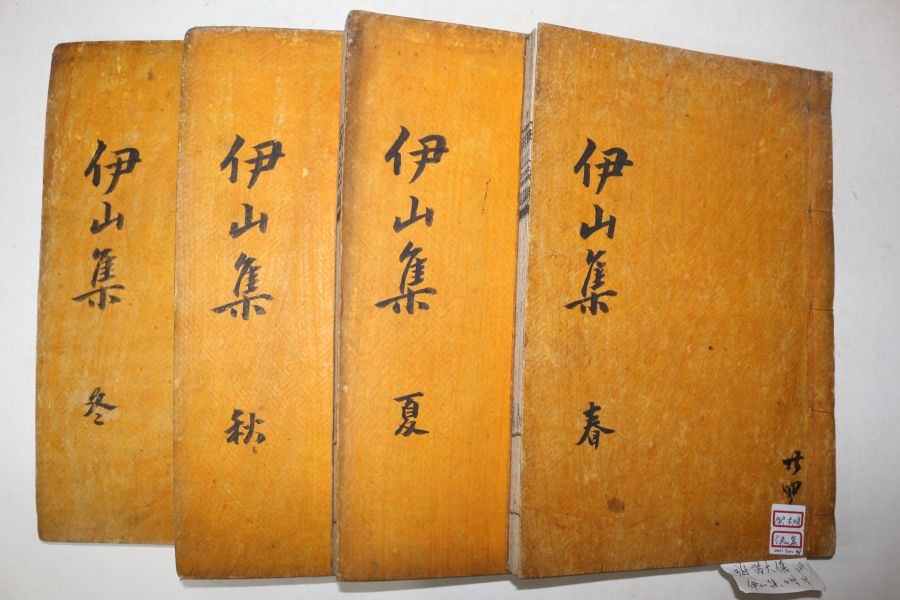 伊山集
春
伊山集
夏
伊山集
秋
伊山集
冬
伊山集